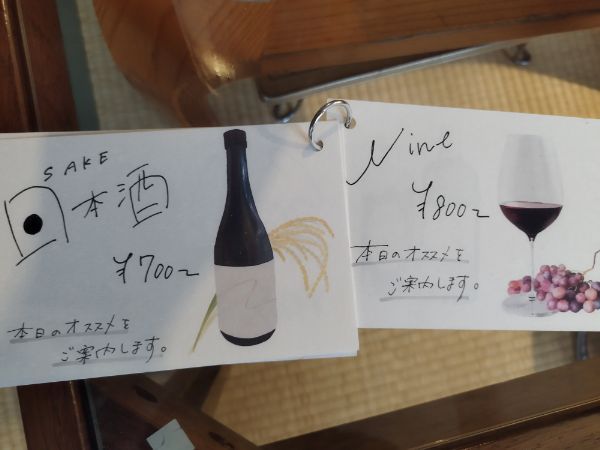 SAKE
日本酒
¥700~
本日のオススメを
ご案内します。
Wine
¥800~
本日のオススメを
ご案内します。